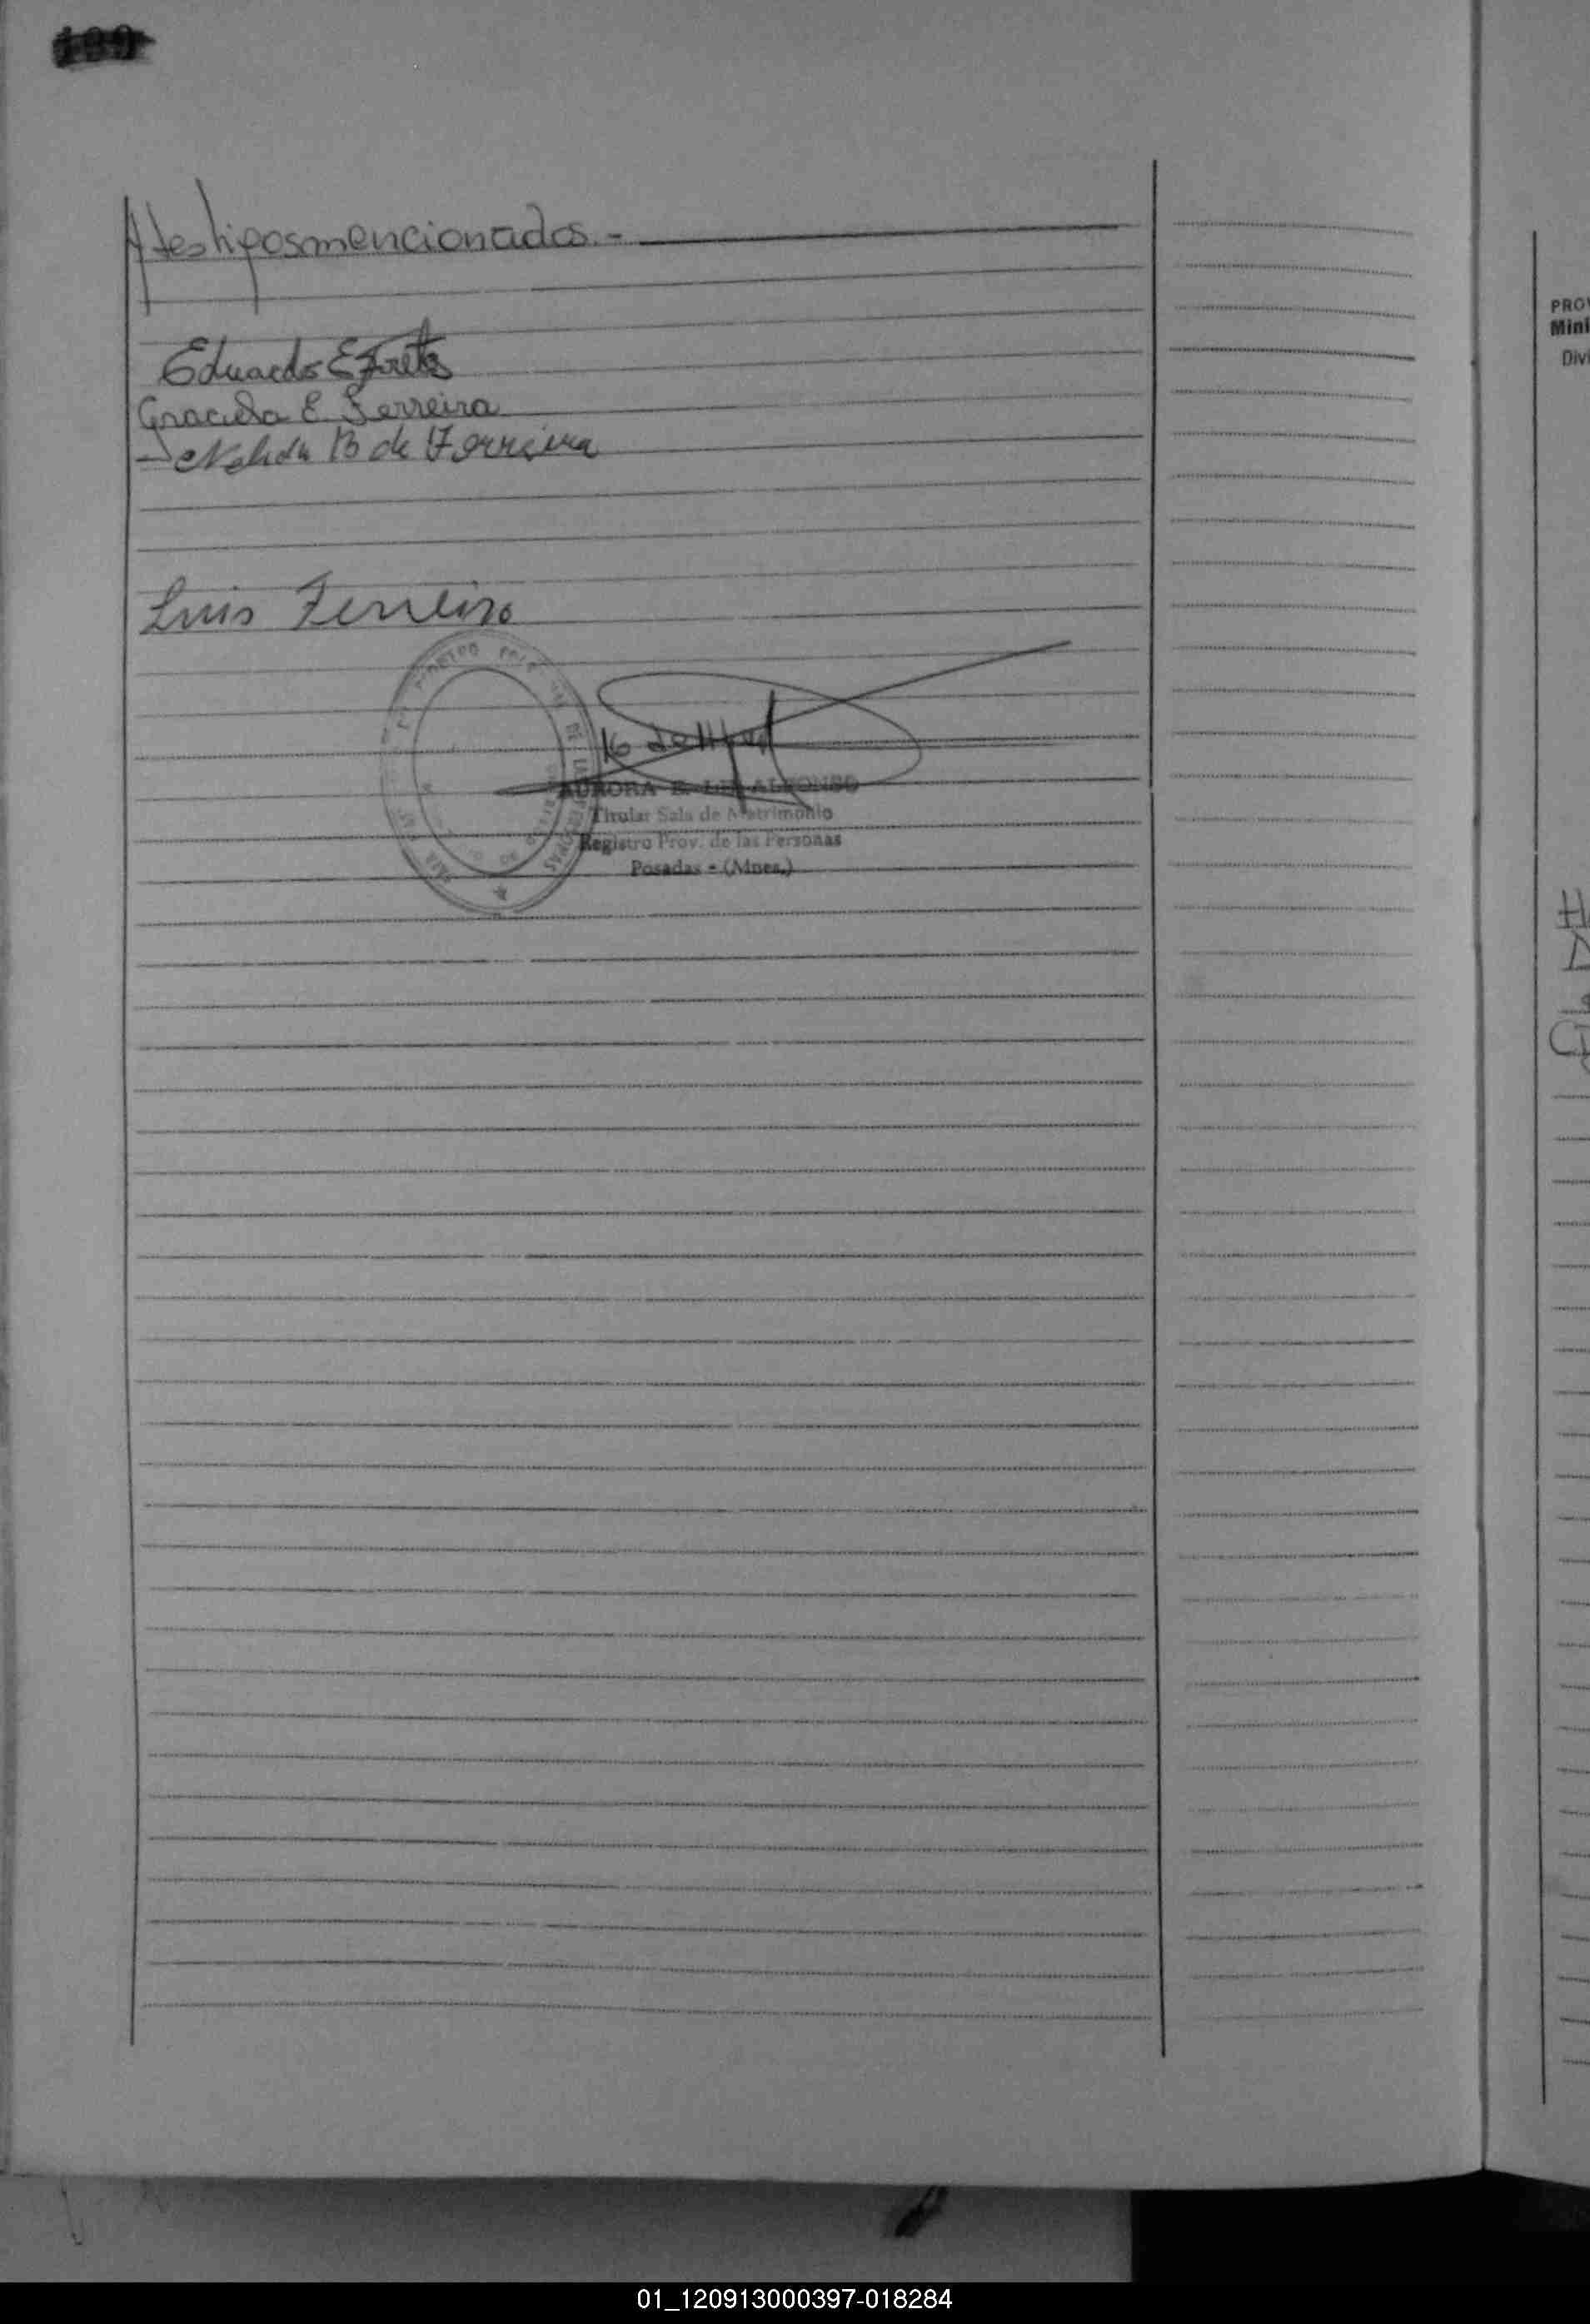 testigos mencionados.-
Eduardo E Fretes
Graciela E. Ferreira
Nelida B de Ferreira
Luis Ferreiro
AURORA E. ALFONSO
Titular Sala de Matrimonio
Registro Prov. de las Personas
Posadas - (Mnes.)
PROV
Mini
Div
01_120913000397-018284